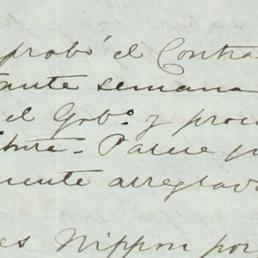 probó el Contra
tante semana
el Gobº y proce
Parece p
mente arreglad
es Nippon por